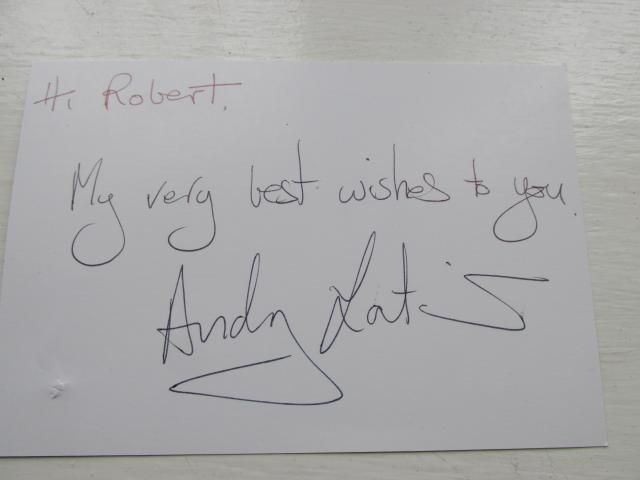 Hi Robert.
My very best wishes to you.
Andy